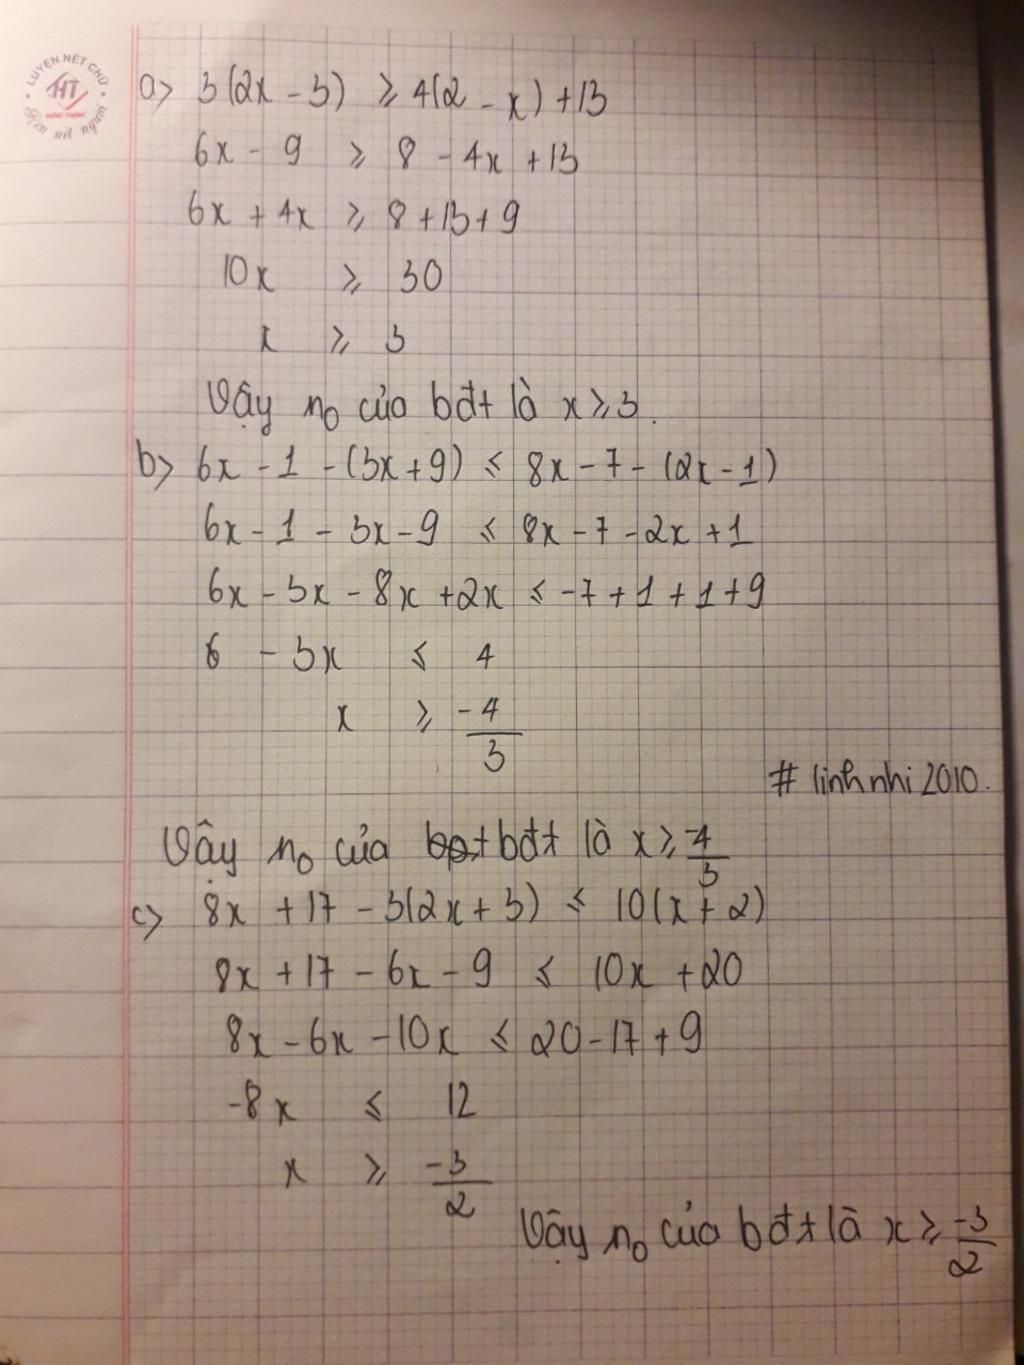 LUYỆN NÉT CHỮ
HT
Rèn nết người
a> 3(2x - 3) ≥ 4(2 - x) + 13
6x - 9 ≥ 8 - 4x + 13
6x + 4x ≥ 8 + 13 + 9
10x ≥ 30
x ≥ 3
Vậy n₀ của bđt là x ≥ 3.
b> 6x - 1 - (3x + 9) ≤ 8x - 7 - (2x - 1)
6x - 1 - 3x - 9 ≤ 8x - 7 - 2x + 1
6x - 3x - 8x + 2x ≤ -7 + 1 + 1 + 9
- 3x ≤ 4
x ≥ -4/3
# linhnhi 2010.
Vậy n₀ của bđt là x ≥ -4/3
c> 8x + 17 - 3(2x + 3) ≤ 10(x + 2)
8x + 17 - 6x - 9 ≤ 10x + 20
8x - 6x - 10x ≤ 20 - 17 + 9
-8x ≤ 12
x ≥ -3/2
Vậy n₀ của bđt là x ≥ -3/2